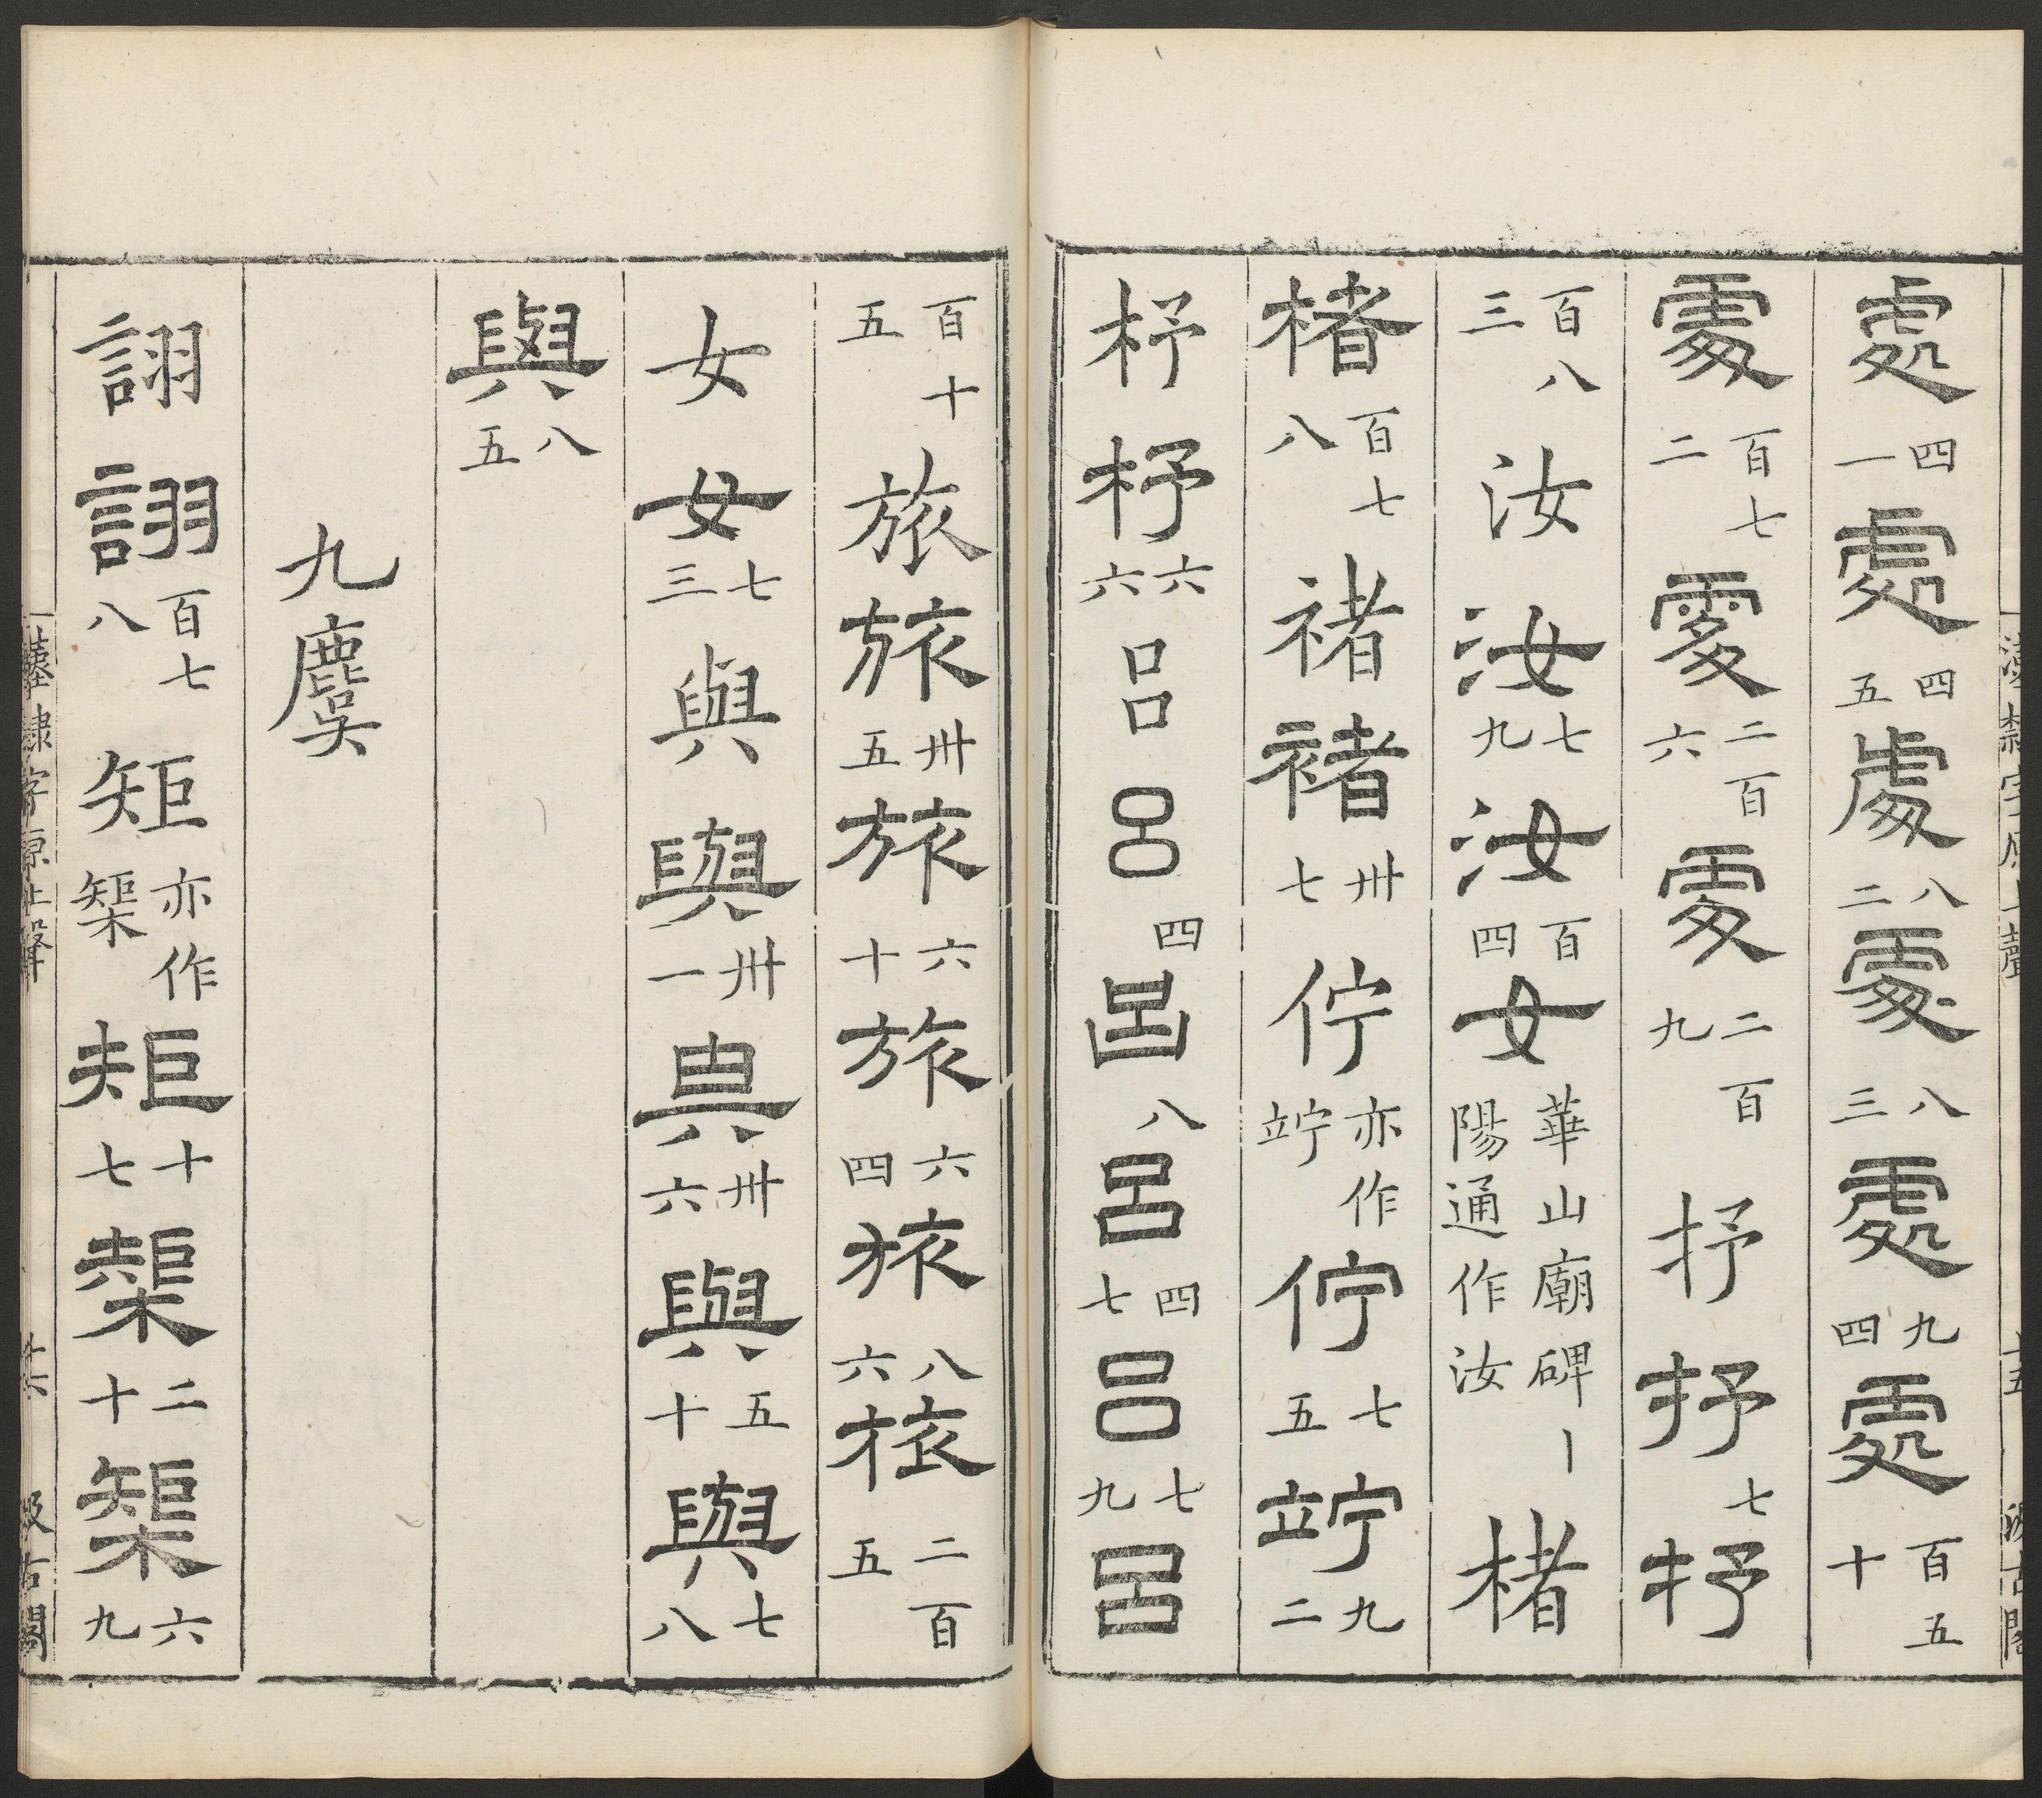 處四一處四五處八二處八三處九四處百五十
處百七二處二百六處二百九抒抒七抒
百八三汝汝七九汝百四女華山廟碑丨陽通作汝楮
楮百七八褚褚卅七佇亦作竚佇七五竚九二
杼杼六六呂呂四呂八呂四七呂七九呂
百十五旅旅卅五旅六十旅六四旅八六旅二百五
女女七三與與卅一與卅六與五十與七八
與八五
九麌
詡詡百七八矩亦作榘矩十七榘二十榘六九
漢隸字源上聲 汲古閣